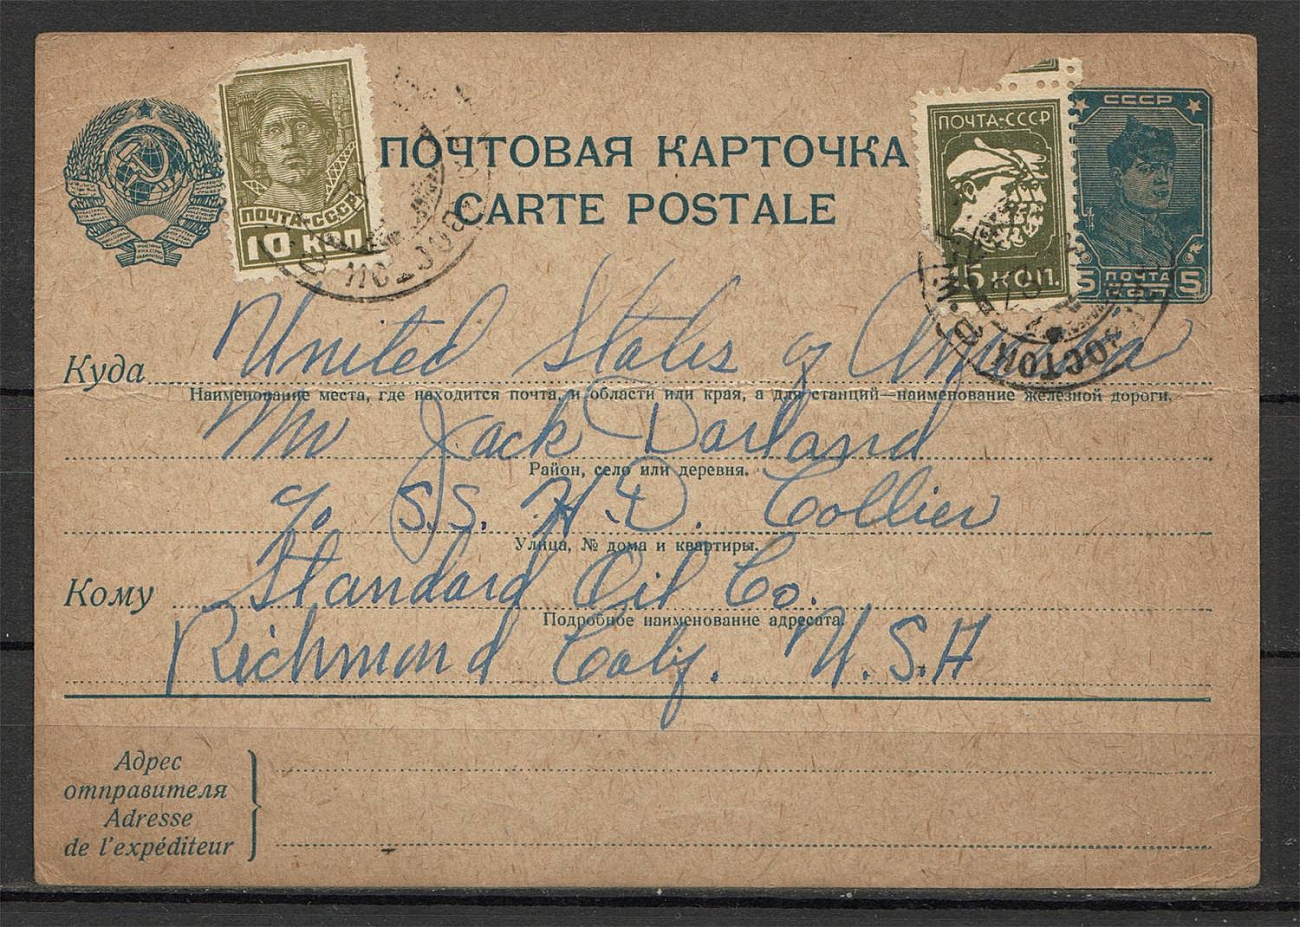 СССР
ПОЧТА-СССР
ПОЧТОВАЯ КАРТОЧКА
CARTE POSTALE
ПОЧТА-СССР
10 КОП
15 коп.
5 ПОЧТА 5
СССР
United States of America
Куда
Наименование места, где находится почта, и области или края, а для станций—наименование железной дороги.
Mr Jack Darland
Район, село или деревня.
c/o S.S. H.D. Collier
Улица, № дома и квартиры.
Кому Standard Oil Co.
Подробное наименование адресата.
Richmond Calif. U.S.A
Адрес
отправителя
Adresse
de l'expéditeur